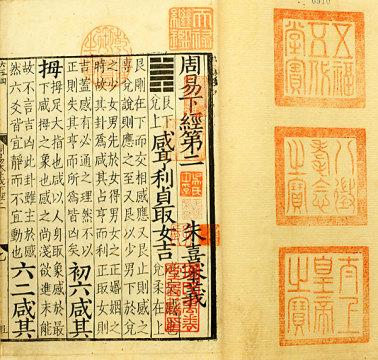 五福
五代
堂寶
八徵
耄念
之寶
太上
皇帝
之寶
天祿
繼鑑
周易下經第二
朱熹本義
艮下
兌上
咸亨利貞取女吉
兌柔在上
艮剛在下而交相感應又艮止則感之
專兌說則應之至又艮以少男下於兌
之少女男先於女得男女之正婚姻之
時故其卦為咸其占亨而利正取女則
吉蓋感有必通之理然不以
正則失其亨而所為皆凶矣
初六咸其
拇
拇足大指也咸以人身取象感於最
下咸拇之象也感之尚淺欲進未能
故不言吉凶此卦雖主於感
然六爻皆宜靜而不宜動也
六二咸其